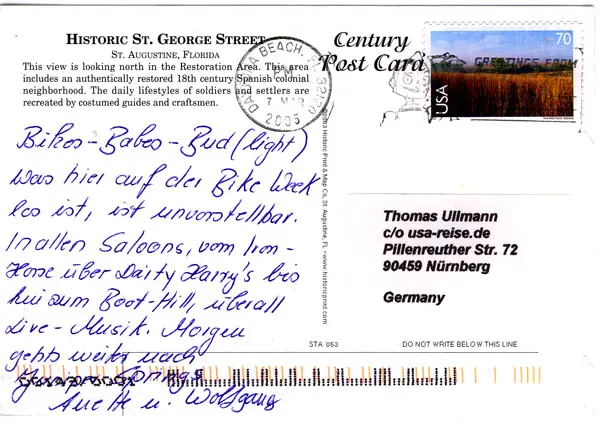 HISTORIC ST. GEORGE STREET
ST. AUGUSTINE, FLORIDA
This view is looking north in the Restoration Area. This area
includes an authentically restored 18th century Spanish colonial
neighborhood. The daily lifestyles of soldiers and settlers are
recreated by costumed guides and craftsmen.
Century
Post Card
DAYTONA BEACH,
PM
7 MAR
2005
70
USA
GREETINGS FROM
Bikes-Babes-Bud (light)
Was hier auf der Bike Week
los ist, ist unvorstellbar.
In allen Saloons, vom Iron-
Horse über Dirty Harry's bis
hin zum Boot-Hill, überall
Live-Musik. Morgen
gehts weiter nach
Anette u. Wolfgang
Historic Print & Map Co, St. Augustine, FL - www.historicprint.com
Thomas Ullmann
c/o usa-reise.de
Pillenreuther Str. 72
90459 Nürnberg
Germany
STA 053
DO NOT WRITE BELOW THIS LINE